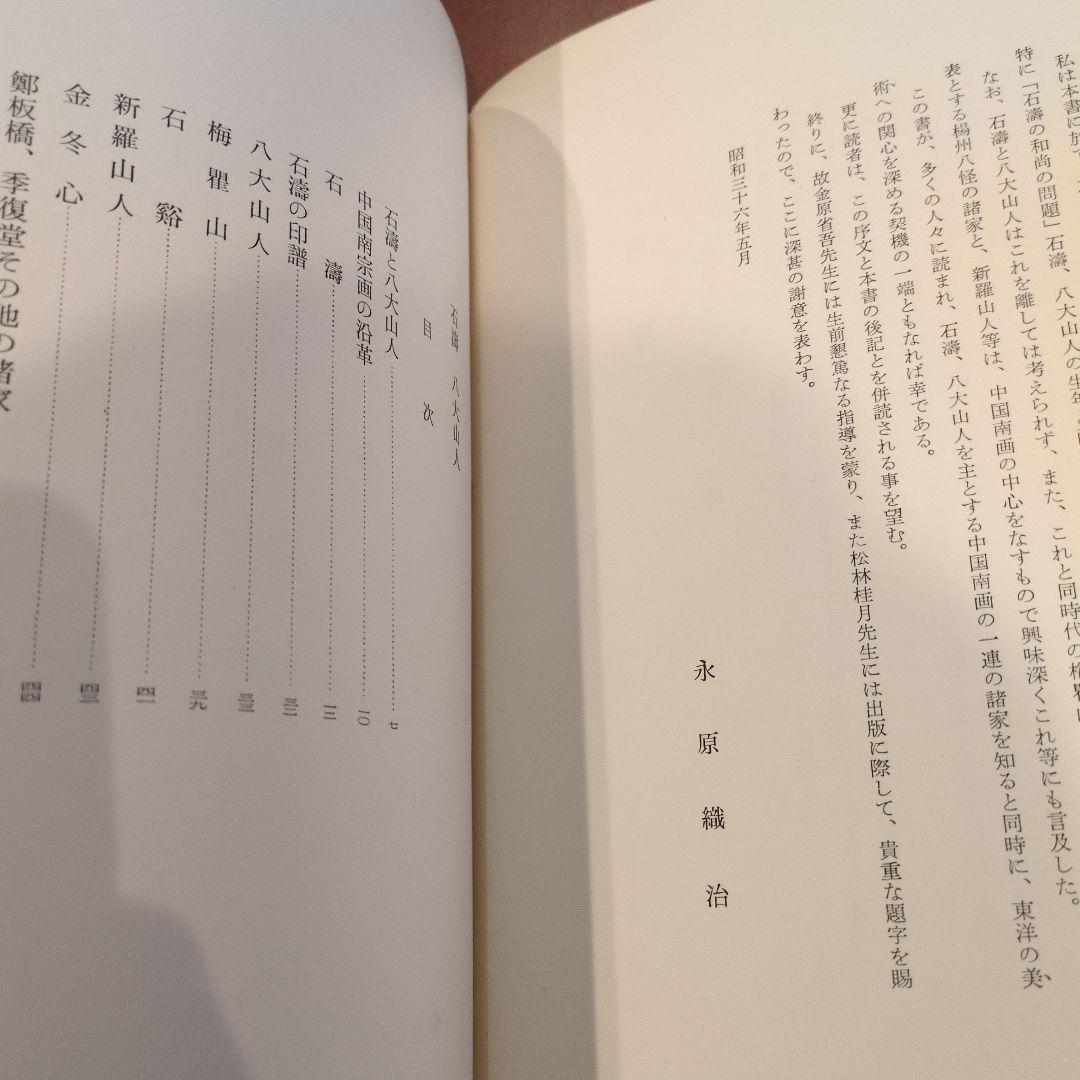 私は本書に於て、
特に「石濤の和尚の問題」石濤、八大山人の生年
なお、石濤と八大山人はこれを離しては考えられず、また、これと同時代の梅瞿山
表とする楊州八怪の諸家と、新羅山人等は、中国南画の中心をなすもので興味深くこれ等にも言及した。
この書が、多くの人々に読まれ、石濤、八大山人を主とする中国南画の一連の諸家を知ると同時に、東洋の美
術への関心を深める契機の一端ともなれば幸である。
更に読者は、この序文と本書の後記とを併読される事を望む。
終りに、故金原省吾先生には生前懇篤なる指導を蒙り、また松林桂月先生には出版に際して、貴重な題字を賜
わったので、ここに深甚の謝意を表わす。
昭和三十六年五月
永原織治
石濤 八大山人
目次
石濤と八大山人……七
中国南宗画の沿革……一〇
石濤……一二
石濤の印譜……三二
八大山人……三三
梅瞿山……三九
石谿……四一
新羅山人……四三
金冬心……四四
鄭板橋、季復堂その他の諸家